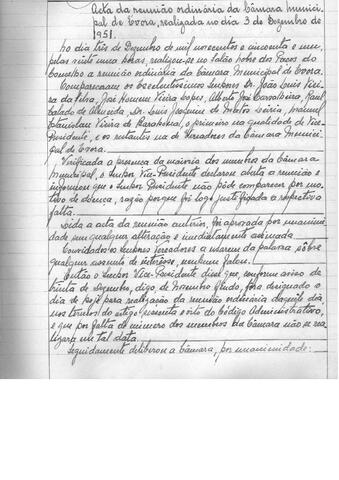 Acta da reunião ordinária da Câmara Munici-
pal de Evora, realizada no dia 3 de Dezembro de
1951.
No dia três de Dezembro de mil novecentos e cincoenta e um,
pelas vinte uma horas, realizou-se no salão nobre dos Paços do
Concelho a reunião ordinária da Câmara Municipal de Evora.
Compareceram os Excelentissimos Senhores Dr. João Luis Viei-
ra da Silva, José Homem Vieira Lopes, Alberto José Carvalheira, Raul
de Almeida, Dr. Luis Joaquim de Matos, Manuel
Estanislau Vieira de, o primeiro na qualidade de Vice-
Presidente, e os restantes na de Vereadores da Câmara Munici-
pal de Evora.
Verificada a presença da maioria dos membros da Câmara
Municipal, o Senhor Vice-Presidente declarou aberta a reunião e
informou que o Senhor Presidente não pôde comparecer por mo-
tivo de doença, razão porque foi logo justificada a respectiva
falta.
Lida a acta da reunião anterior, foi aprovada por unanimi-
dade sem qualquer alteração e imediatamente assinada
Convidados os Senhores Vereadores a usarem da palavra sôbre
qualquer assunto de interesse, nenhum falou.
Então o Senhor Vice-Presidente disse que, conforme aviso de
trinta de Dezembro, digo, de Novembro findo, fora designado o
dia de hoje para realização da reunião ordinária daquele dia
nos termos do artigo e oito do Código Administrativo,
e que por falta de número dos membros da Câmara não se rea-
lizara em tal data.
Seguidamente deliberou a Câmara, por unanimidade: